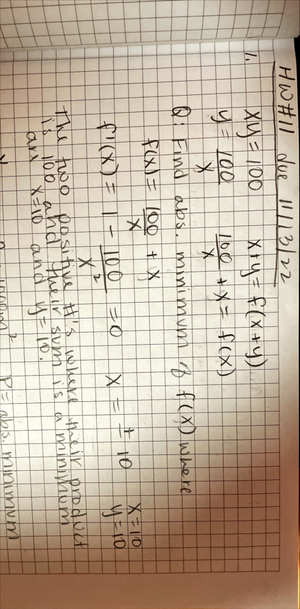 HW#11 due 11/13/22
1. xy = 100 x+y = f(x+y)
y = 100/x 100/x + x = f(x)
Q: Find abs. minimum of f(x) where
f(x) = 100/x + x
f'(x) = 1 - 100/x² = 0 x = ± 10 x=10 y=10
The two positive #'s where their product
is 100 and their sum is a minimum
are x=10 and y=10.
P = abs. minimum